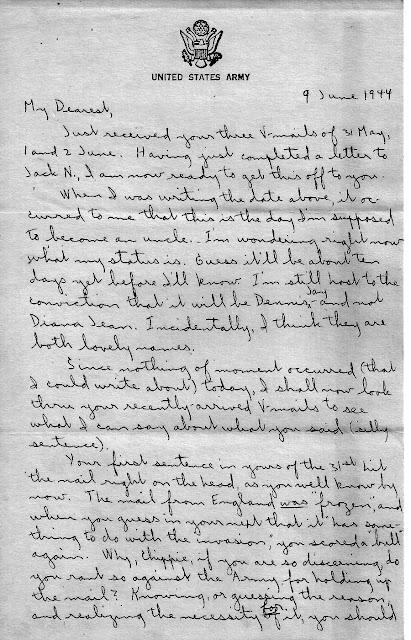 UNITED STATES ARMY
9 June 1944
My Dearest,
Just received your three V-mails of 31 May,
1 and 2 June. Having just completed a letter to
Jack N., I am now ready to get this off to you.
When I was writing the date above, it oc-
curred to me that this is the day I'm supposed
to become an uncle. I'm wondering right now
what my status is. Guess it'll be about ten
days yet before I'll know. I'm still host to the
conviction that it will be Dennis Jay - and not
Diana Jean. Incidentally, I think they are
both lovely names.
Since nothing of moment occurred (that
I could write about) today, I shall now look
thru your recently arrived V-mails to see
what I can say about what you said (silly
sentence).
Your first sentence in yours of the 31st hit
the mail right on the head, as you well know by
now. The mail from England was "frozen", and
when you guess in your next that "it has some-
thing to do with the invasion," you scored a "bell"
again. Why, Chippie, if you are so discerning, do
you rant so against the Army for holding up
the mail? Knowing, or guessing the reason,
and realizing the necessity for it, you should